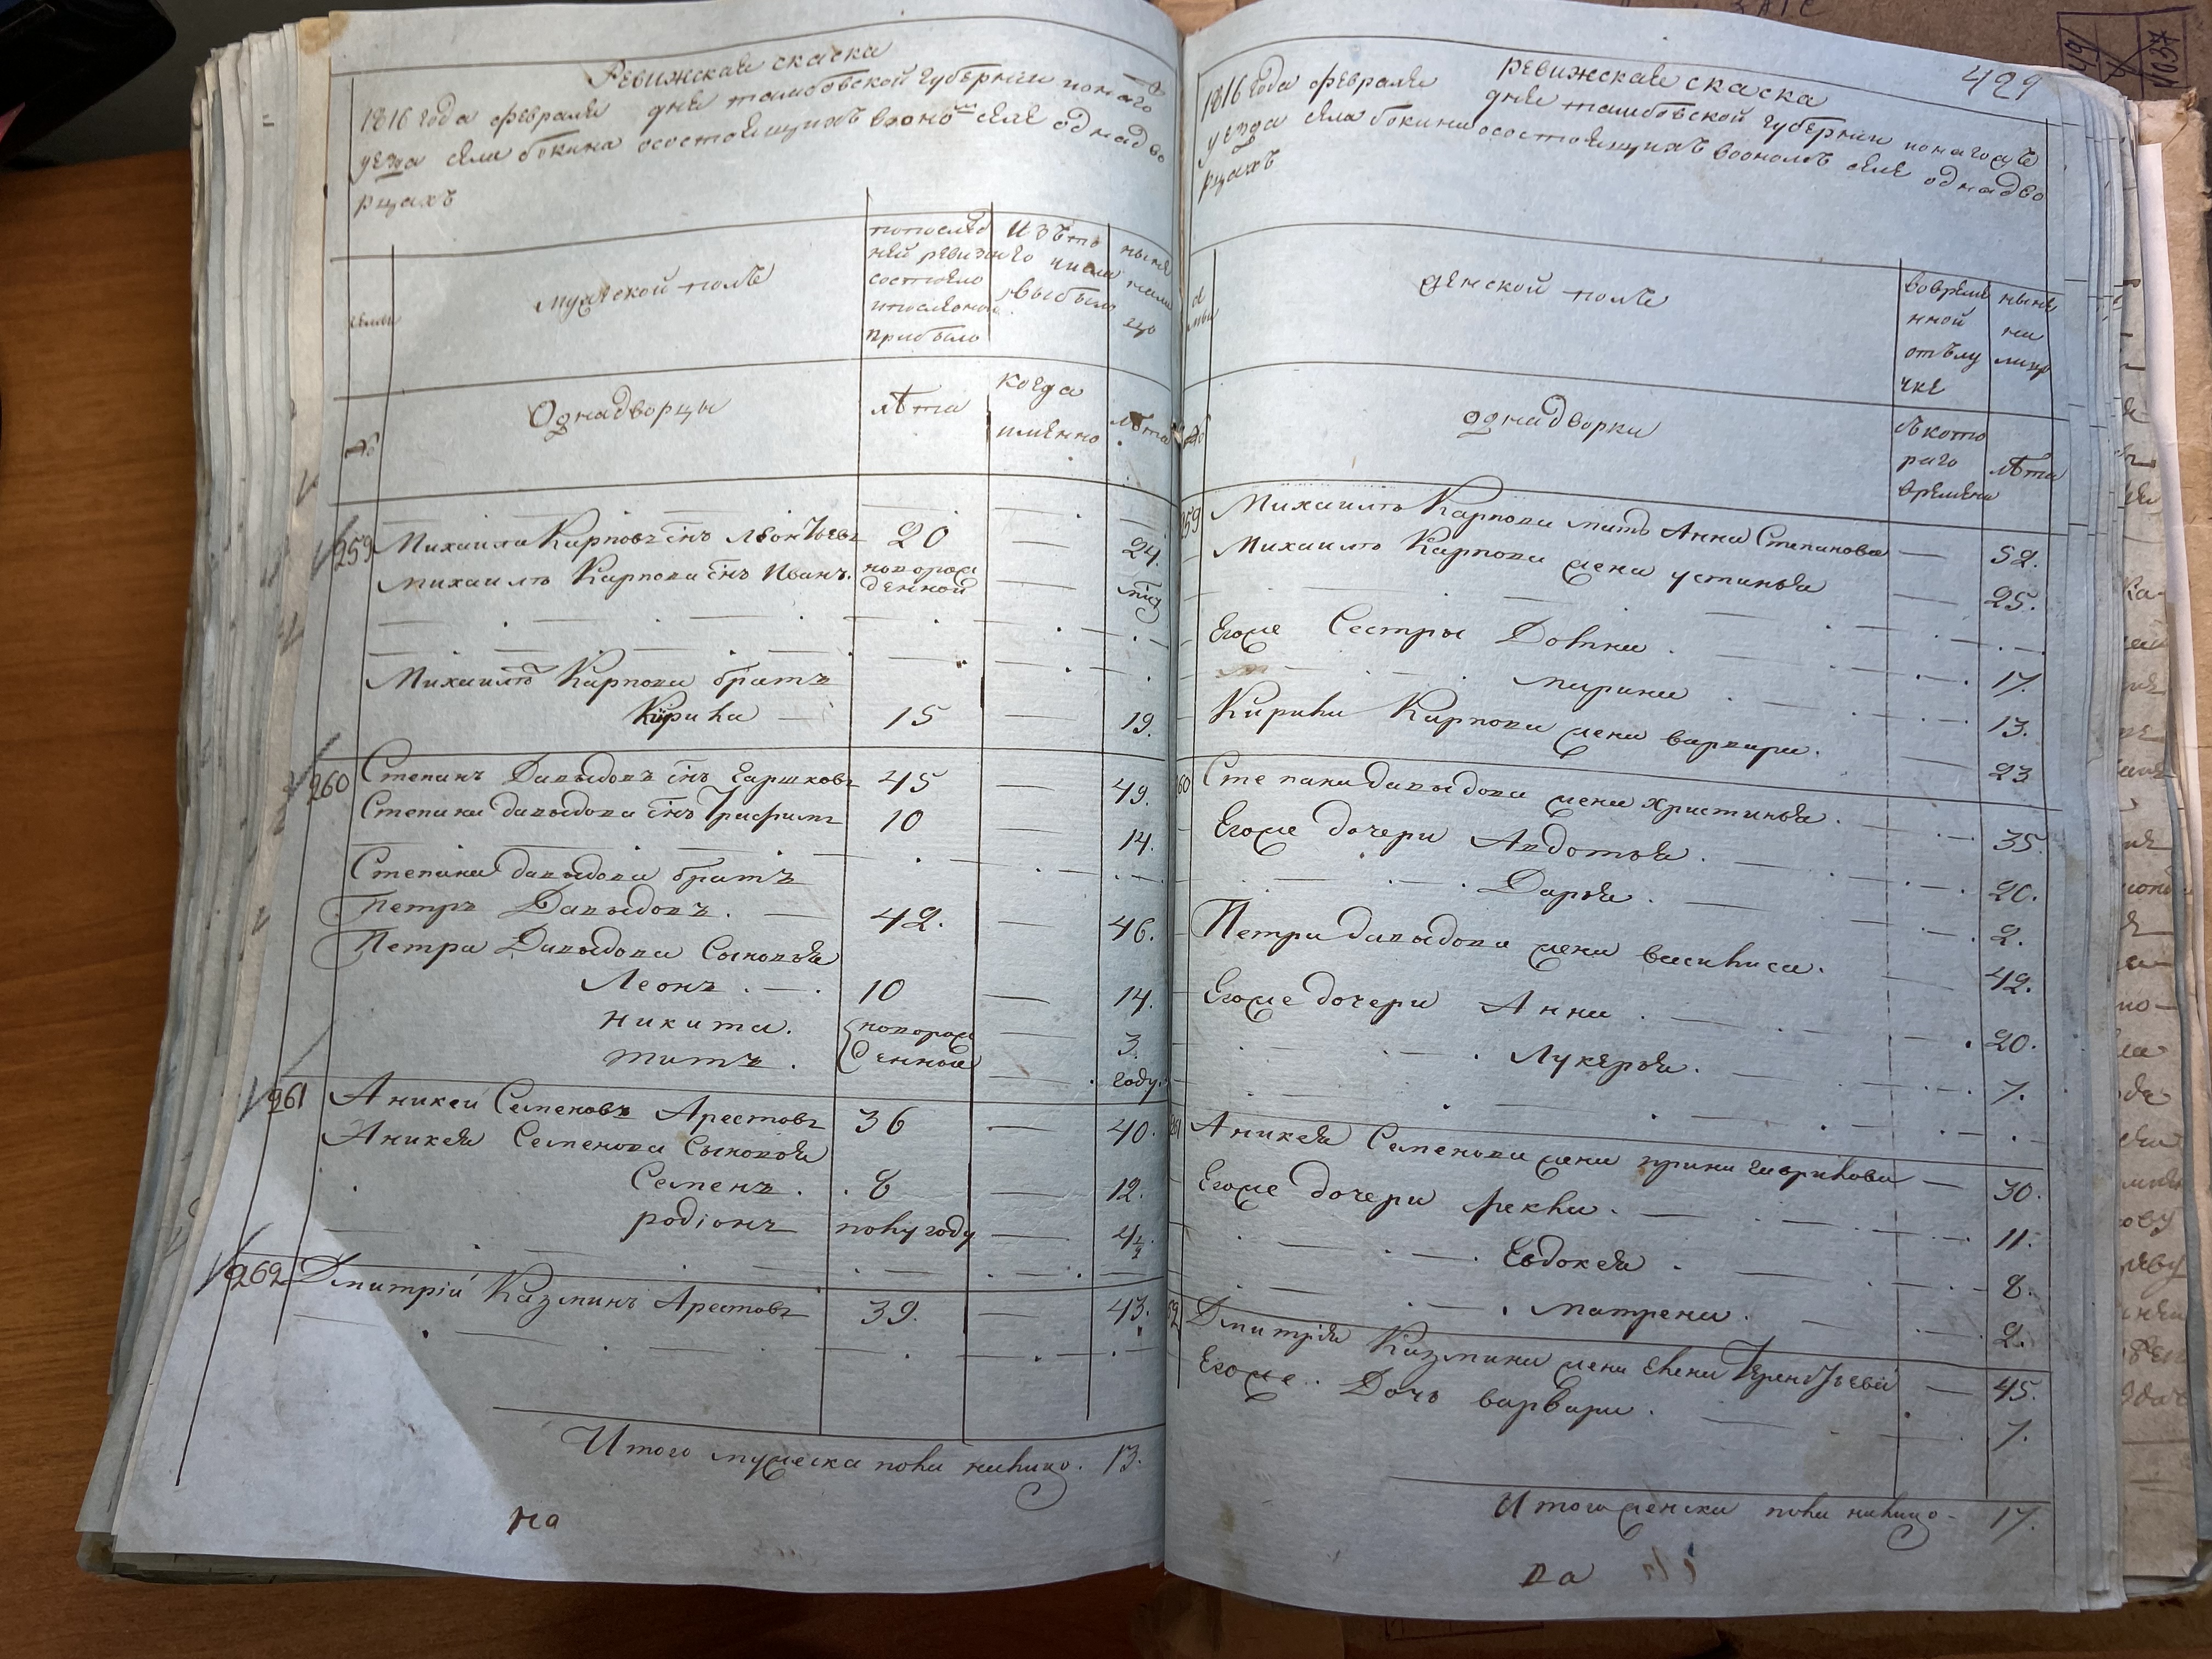 Ревижская скаска
1816 года февраля дня тамбовской губернии тогого
уезда села бокина осостоящихъ вооно селе однадво
рцахъ
мужеской полъ
попослед
ней ревизи
состояло
ипоследней
прибыло
изъто
го числа
выбыло
ныне
нали
цо
семьи
№
Однадворцы
лѣта
когда
имянно
лѣта
259 Михаила Карповъ снъ Леонтьевъ 20 — 24.
Михаилы Карпова снъ Иванъ. новорож
денной
Михаилы Карпова братъ
Кирила — 15 — 19.
260 Степанъ Давыдовъ снъ Гаршковъ 45 — 49.
Степана давыдова снъ Трафимъ 10 — 14.
Степана давыдова братъ
Петръ Давыдовъ. — 42. — 46.
Петра Давыдова Сыновья
Леонъ. — 10 — 14.
никита. новорож — 3.
титъ. денныи — году.
261 Аникеи Семеновъ Арестовъ 36 — 40.
Аникея Семенова Сыновья
Семенъ. 8 — 12.
родіонъ полугоду — 4½
262 Дмитрій Казминъ Арестовъ 39. — 43.
Итого мужеска пола налицо. 13.
на
429
ревижская скаска
1816 года февраля дня тамбовской губернии тогожъ
уезда села бокина осостоящихъ воономъ селе однадво
рцахъ
женской полъ
вовреме
нной
отълу
чке
ныне
на
лицо
№
однадворки
съкото
раго
времени
лѣта
259 Михаилы Карпова мать Анна Степанова — 52.
Михаилы Карпова жена устинья — 25.
Егоже Сестры Домна. 17.
марина 13.
Кирилы Карпова жена варвара. 23
60 Степана давыдова жена христинья. 35.
Егоже дочери Авдотья. 20.
Дарья. 2.
Петра давыдова жена василиса. 42.
Егоже дочери Анна. 20.
Лукерья. 7.
261 Аникея Семенова жена ирина гаврилова — 30.
Егоже дочери фекла. 11.
Евдокея. 8.
матрена. 2.
62 Дмитрія Казмина жена елена Терентьева — 45.
Егоже. Дочь варвара. 7.
Итого женска пола налицо — 17.